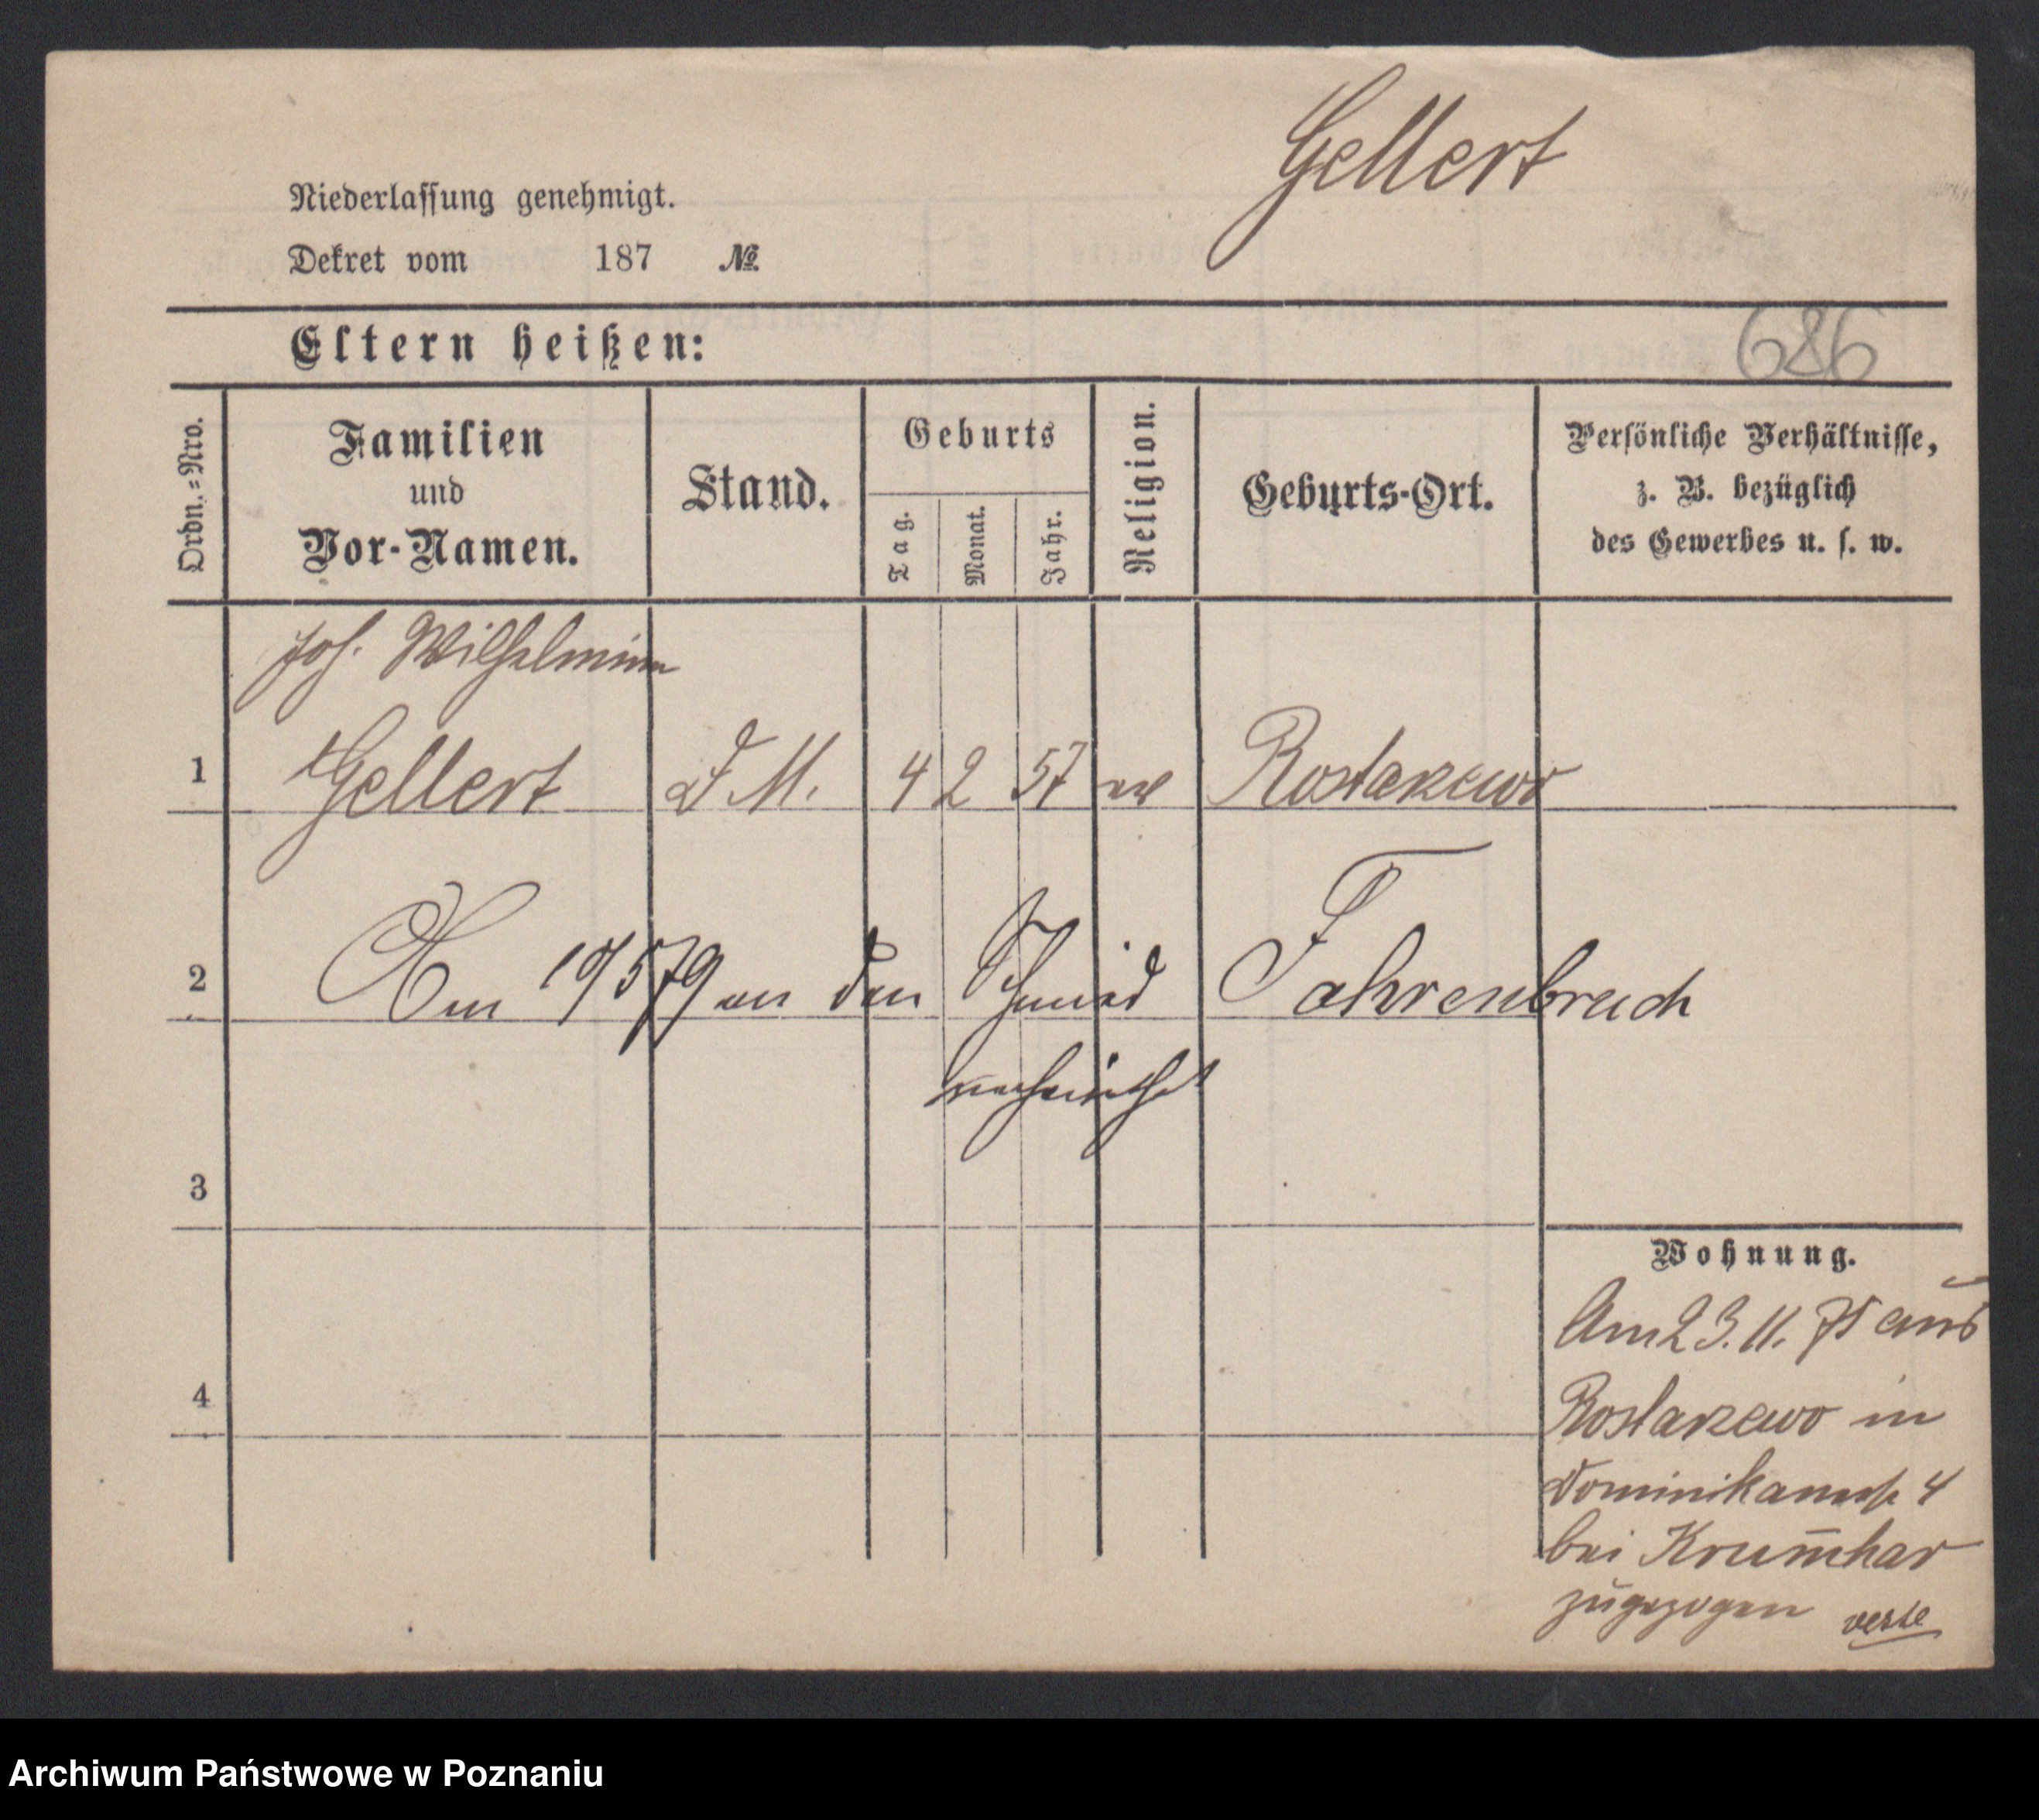 Gellert
Niederlassung genehmigt.
Dekret vom 187 №
Eltern heißen:
686
Ordn.=Nro.
Familien
und
Vor-Namen.
Stand.
Geburts
Tag.
Monat.
Jahr.
Religion.
Geburts-Ort.
Persönliche Verhältnisse,
z. B. bezüglich
des Gewerbes u. s. w.
Joh. Wilhelmine
1 Gellert D M. 4 2 57 ev Rostarzewo
2 Am 19/5 79 an den Schmid Fahrenbruch
verheirathet
3
Wohnung.
Am 23. 11. 75 aus
4
Rostarzewo in
Dominikanerstr 4
bei Krum̅har
zugezogen verte
Archiwum Państwowe w Poznaniu